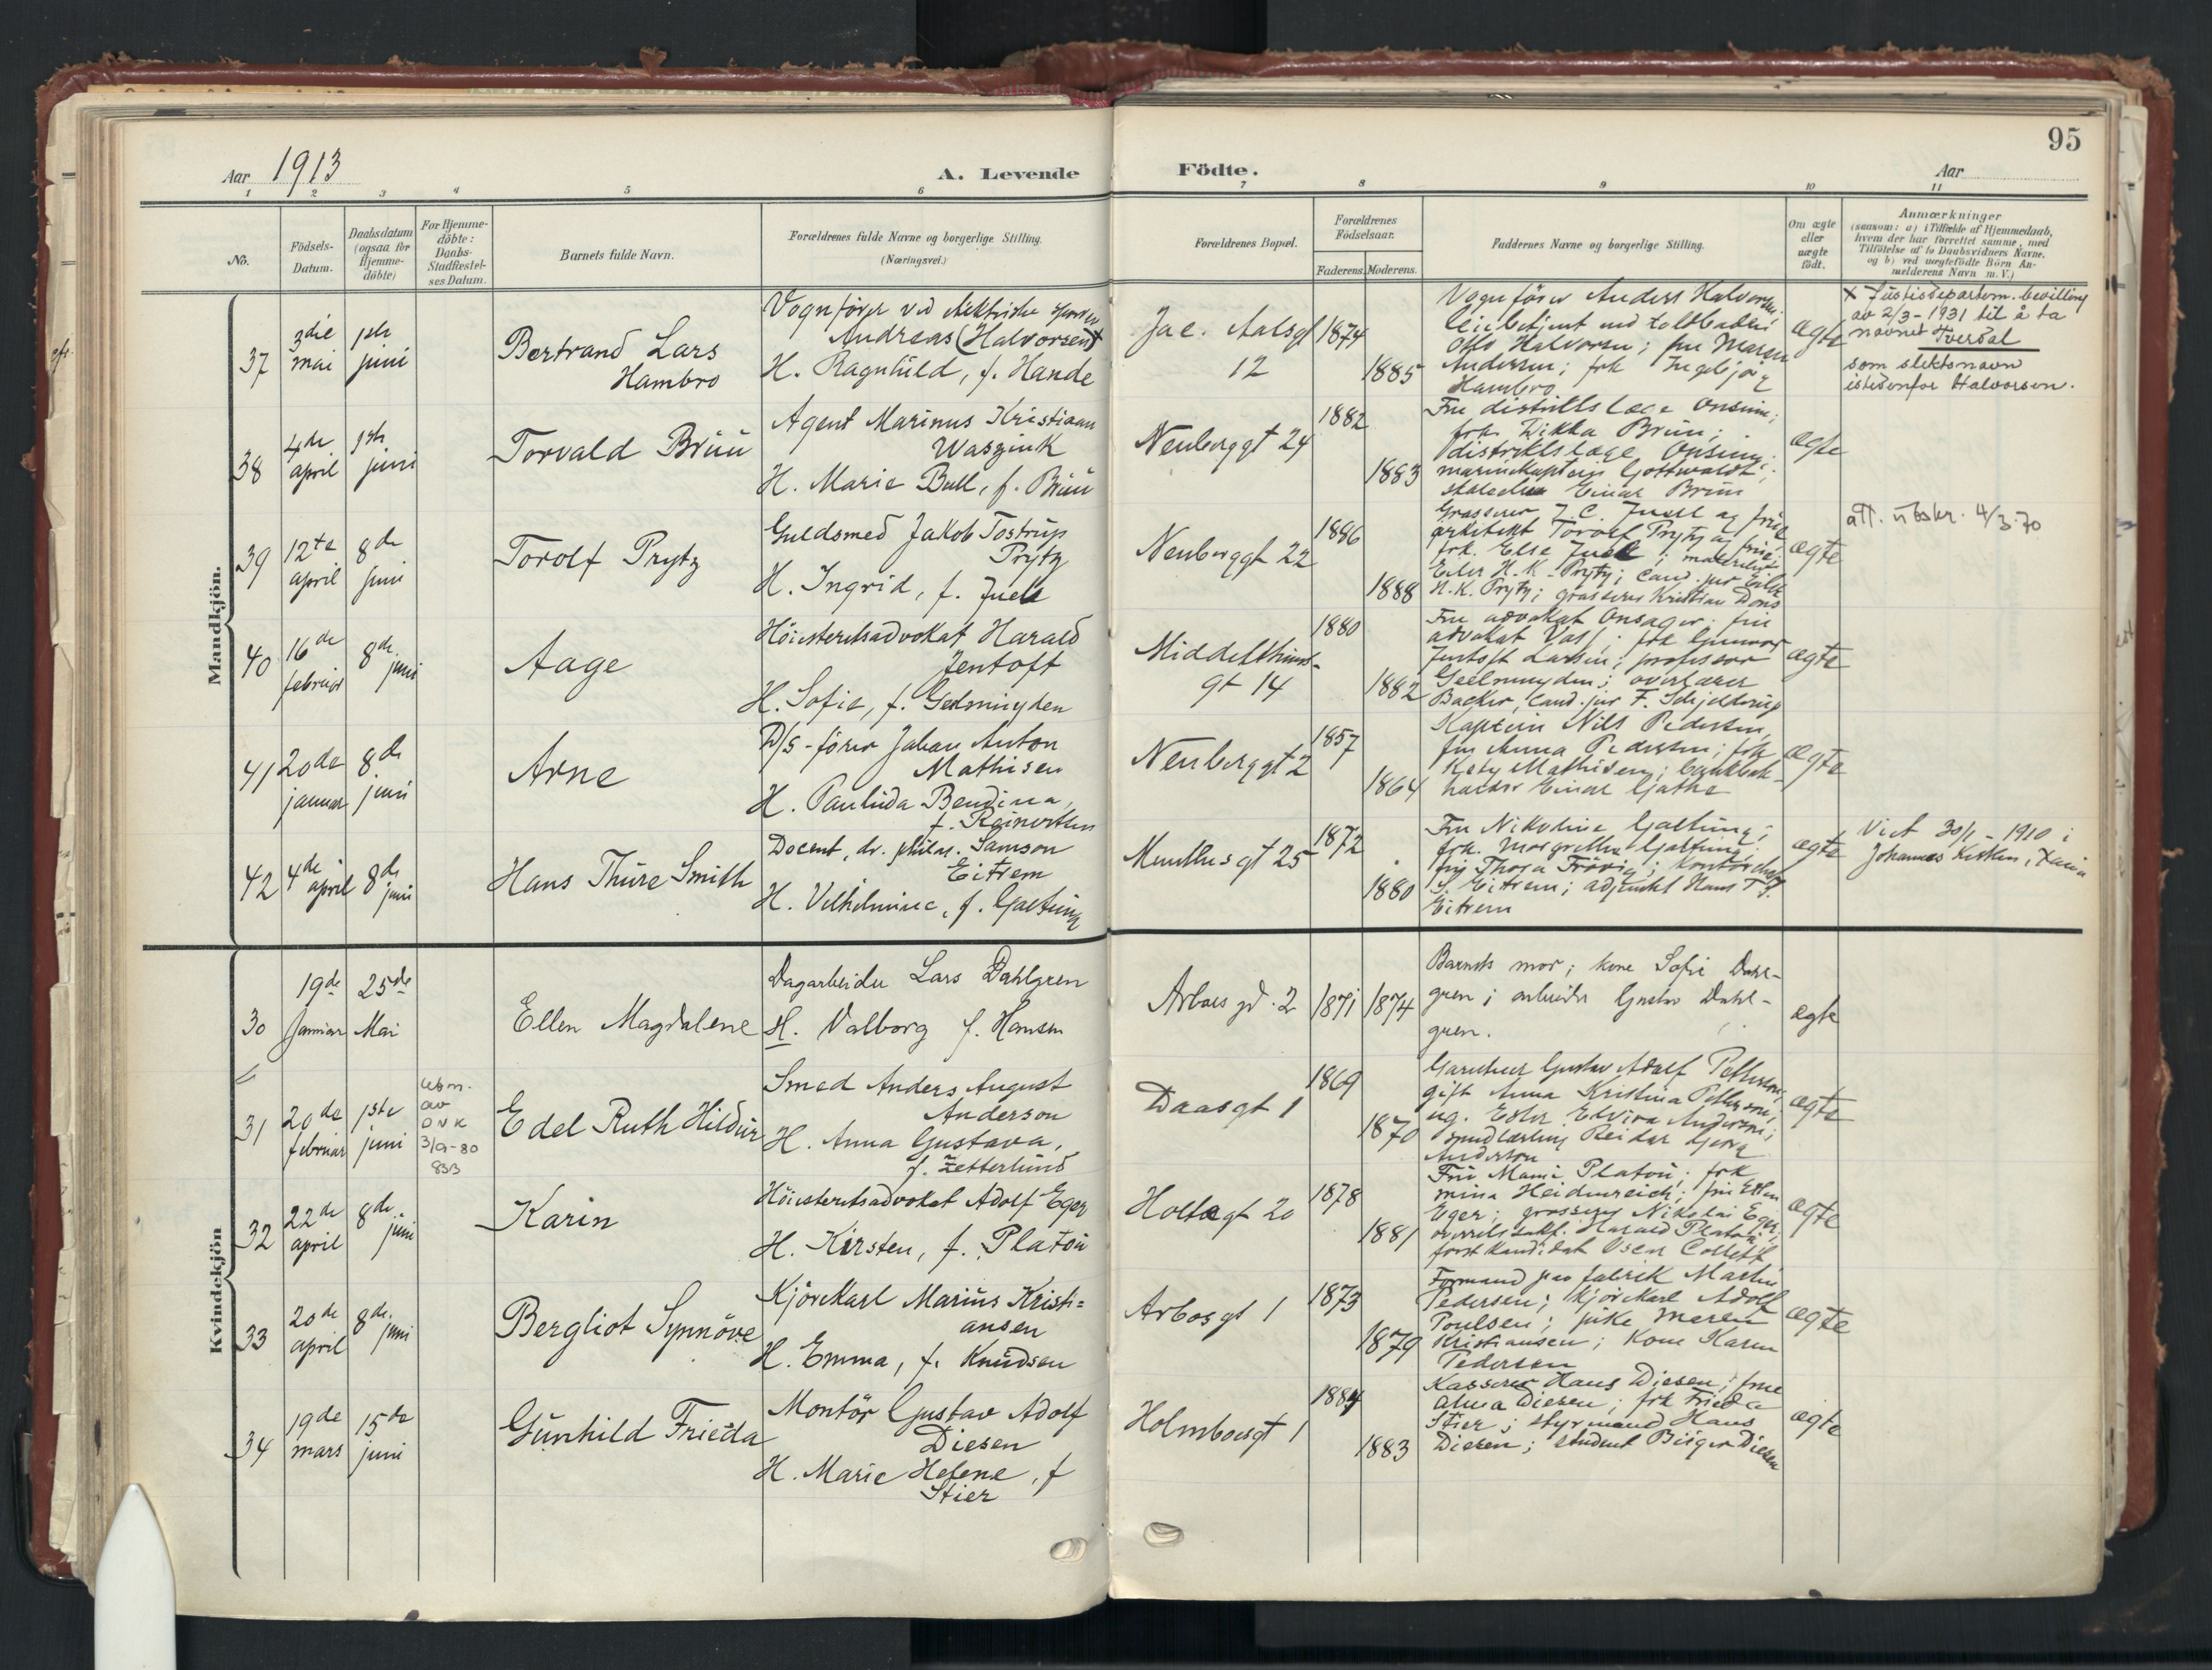 95
Aar 1913
A. Levende
Födte.
Aar
1 2 3 4 5 6 7 8 9 10 11
No.
Födsels-
Datum.
Daabsdatum
(ogsaa for
Hjemme-
döbte)
For Hjemme-
döbte:
Daabs-
Stadfæstel-
ses Datum.
Barnets fulde Navn.
Forældrenes fulde Navne og borgerlige Stilling.
(Næringsvei.)
Forældrenes Bopæl.
Forældrenes
Födselsaar.
Faderens. Moderens.
Faddernes Navne og borgerlige Stilling.
Om ægte
eller
uægte
födt.
Anmærkninger
(saasom: a) i Tilfælde af Hjemmedaab,
hvem der har forrettet samme, med
Tilföielse af to Daabsvidners Navne.
og b) ved uægtefödte Börn An-
melderens Navn m. V.)
Mandkjön.
37
3die
mai
1ste
juni
Bertrand Lars
Hambro
Vognfører ved elektriske
Andreas (Halvorsen)
H. Ragnhild, f. Hande
Jac. Aalsgt
12
1874
1885
Vognfører Anders Halvorsen
Otto Halvorsen; fru Maren
Andersen; frk Ingebjørg
Hambro
ægte
x Justisdepartem. bevilling
av 2/3-1931 til å ta
navnet Tverdal
som slektsnavn
istedenfor Halvorsen.
38
4de
april
1ste
juni
Torvald Brun
Agent Marinus Kristiaan
Waszink
H. Marie Bull, f. Brun
Neuberggt 24
1882
1883
Fru distriktslæge Onsum;
frk. Dikka Brun;
distriktslæge Onsum;
marinekaptein Gottwaldt;
Einar Brun
ægte
39
12te
april
8de
juni
Torolf Prytz
Guldsmed Jakob Tostrup
Prytz
H. Ingrid, f. Juell
Neuberggt 22
1886
1888
Grosserer J. C. Juell og frue
arkitekt Torolf Prytz og frue;
frk. Else Juell;
Eiler H. K. Prytz; cand. jur Eiler
H. K. Prytz; grosserer Kristian Dons
ægte
att. utskr. 4/3-70
40
16de
februar
8de
juni
Aage
Höiesteretsadvokat Harald
Jentoft
H. Sofie, f. Geelmuyden
Middelthuns-
gt 14
1880
1882
Fru advokat Onsager; fru
advokat Vass; frk Gunvor
Jentoft Larsen; professor
Geelmuyden; overlærer
Backer, Cand. jur F. Schjelderup
ægte
41
20de
januar
8de
juni
Arne
D/S-fører Johan Anton
Mathisen
H. Paulida Bendina,
f. Reinertsen
Neuberggt 2
1857
1864
Kaptein Nils Pedersen,
fru Anna Pedersen; frk
Mathisen; bankbok-
holder Einar Gjathe
ægte
42
4de
april
8de
juni
Hans Thure Smith
Docent, dr. philos. Samson
Eitrem
H. Vilhelmine, f. Galtung
Munthesgt 25
1872
1880
Fru Nikoline Galtung;
frk. Margrethe Galtung
fru Thora Trövig; kontorchef
S. Eitrem; adjunkt Hans T. J.
Eitrem
ægte
Viet 30/1 - 1910 i
Johannes Kirken, Xania
Kvindekjön
30
19de
Januar
25de
Mai
Ellen Magdalene
Dagarbeider Lars Dahlgren
H. Valborg f. Hansen
Arbos gd. 2
1871
1874
Barnets mor; kone Sofie Dahl-
gren; arbeider Gustav Dahl-
gren.
ægte
31
20de
februar
1ste
juni
Utm.
av
DNK
3/9-80
Edel Ruth Hildur
Smed Anders August
Anderson
H. Anna Gustava,
f. Zetterlund
Daasgt 1
1869
1870
Garntner Gustav Adolf Petterson;
gift Anna Kristina Petterson;
ug. Ester Elvira Anderson;
smedlærling Reidar Georg
Anderson
ægte
32
22de
april
8de
juni
Karin
Höiesteretsadvokat Adolf Eger
H. Kirsten, f. Platou
Holtegt 20
1878
1881
Fru Mami Platou; frk
Mina Heidenreich; fru Ellen
Eger; grosserer Nikolai Eger;
overretssakf. Harald Platou;
forstkandidat Oscar Collett
ægte
33
20de
april
8de
juni
Bergliot Synnöve
Kjørekarl Marius Kristi=
ansen
H. Emma, f. Knudsen
Arbosgt 1
1873
1879
Formand paa fabrik Martin
Pedersen; kjørekarl Adolf
Poulsen; pike Maren
Kristiansen; kone Karen
Pedersen
ægte
34
19de
mars
15de
juni
Gunhild Frieda
Montör Gustav Adolf
Diesen
H. Marie Helene, f
Stier
Holmboesgt 1
1884
1883
Kasserer Hans Diesen; frue
Alma Diesen; frk Frieda
Stier; styrmand Hans
Diesen; student Birger Diesen
ægte